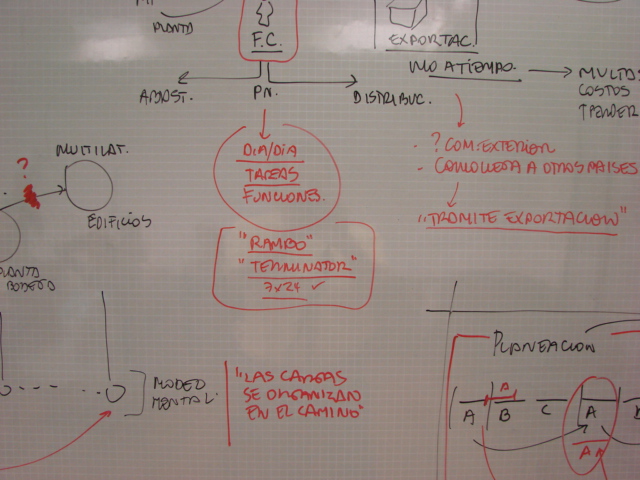 PLANTA
F.C.
EXPORTAC.
NO A TIEMPO.
MULTAS
COSTOS
ABAST.
P.N.
DISTRIBUC.
MULTILAT.
?
EDIFICIOS
DIA/DIA
TAREAS
FUNCIONES.
- ? COM. EXTERIOR
- COMO LLEGA A OTROS PAISES
"TRAMITE EXPORTACION"
"RAMBO"
"TERMINATOR"
7x24 ✓
PLANTA
BODEGA
MODELO
MENTAL.
"LAS CARGAS
SE ORGANIZAN
EN EL CAMINO"
PLANEACION
A
A B C A
A